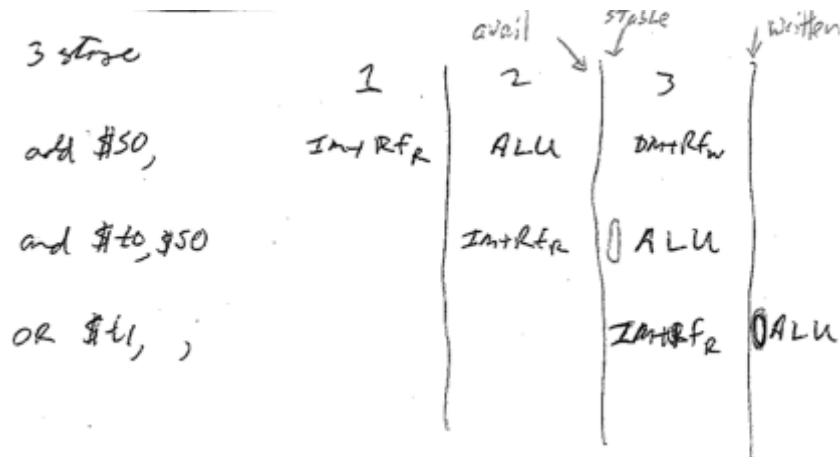 avail stable written
3 stage
1 2 3
add $s0, IM+RfR ALU DM+RfW
and $t0, $s0 IM+RfR ALU
OR $t1, , IM+RfR ALU